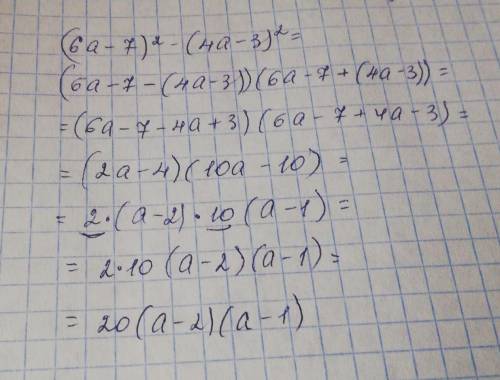 (6a-7)² - (4a-3)² =
(6a-7-(4a-3))(6a-7+(4a-3)) =
= (6a-7-4a+3)(6a-7+4a-3) =
= (2a-4)(10a-10) =
= 2·(a-2)·10(a-1) =
= 2·10(a-2)(a-1) =
= 20(a-2)(a-1)